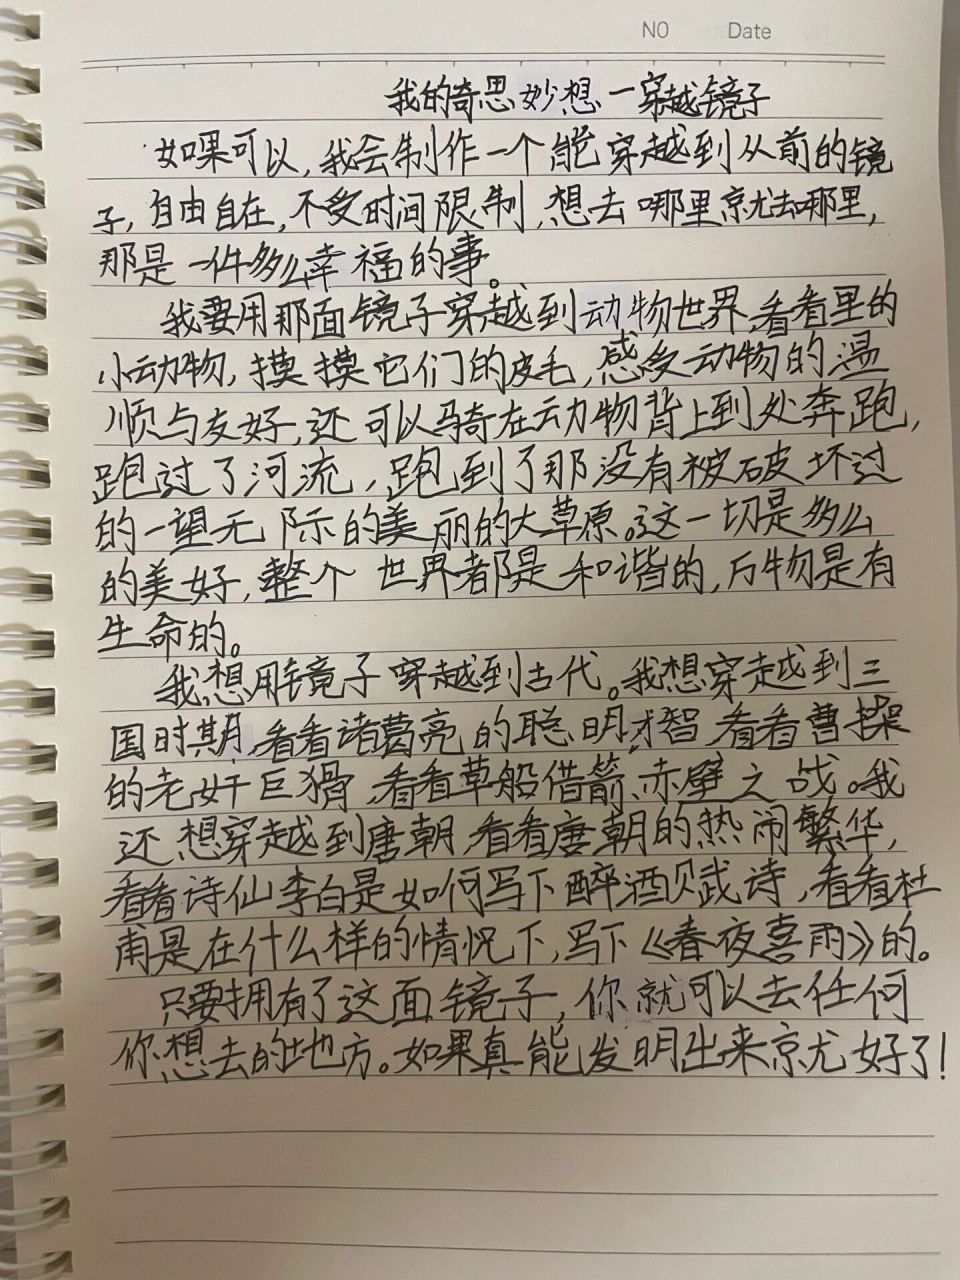 NO Date
我的奇思妙想一穿越镜子
如果可以,我会制作一个能穿越到从前的镜
子,自由自在,不受时间限制,想去哪里就去哪里,
那是一件多么幸福的事。
我要用那面镜子穿越到动物世界,看看里的
小动物,摸摸它们的皮毛,感受动物的温
顺与友好,还可以骑在动物背上到处奔跑,
跑过了河流,跑到了那没有被破坏过
的一望无际的美丽的大草原。这一切是多么
的美好,整个世界都是和谐的,万物是有
生命的。
我想用镜子穿越到古代。我想穿越到三
国时期,看看诸葛亮的聪明才智,看看曹操
的老奸巨猾,看看草船借箭、赤壁之战。我
还想穿越到唐朝,看看唐朝的热闹繁华,
看看诗仙李白是如何写下醉酒赋诗,看看杜
甫是在什么样的情况下,写下《春夜喜雨》的。
只要拥有了这面镜子,你就可以去任何
你想去的地方。如果真能发明出来就好了!